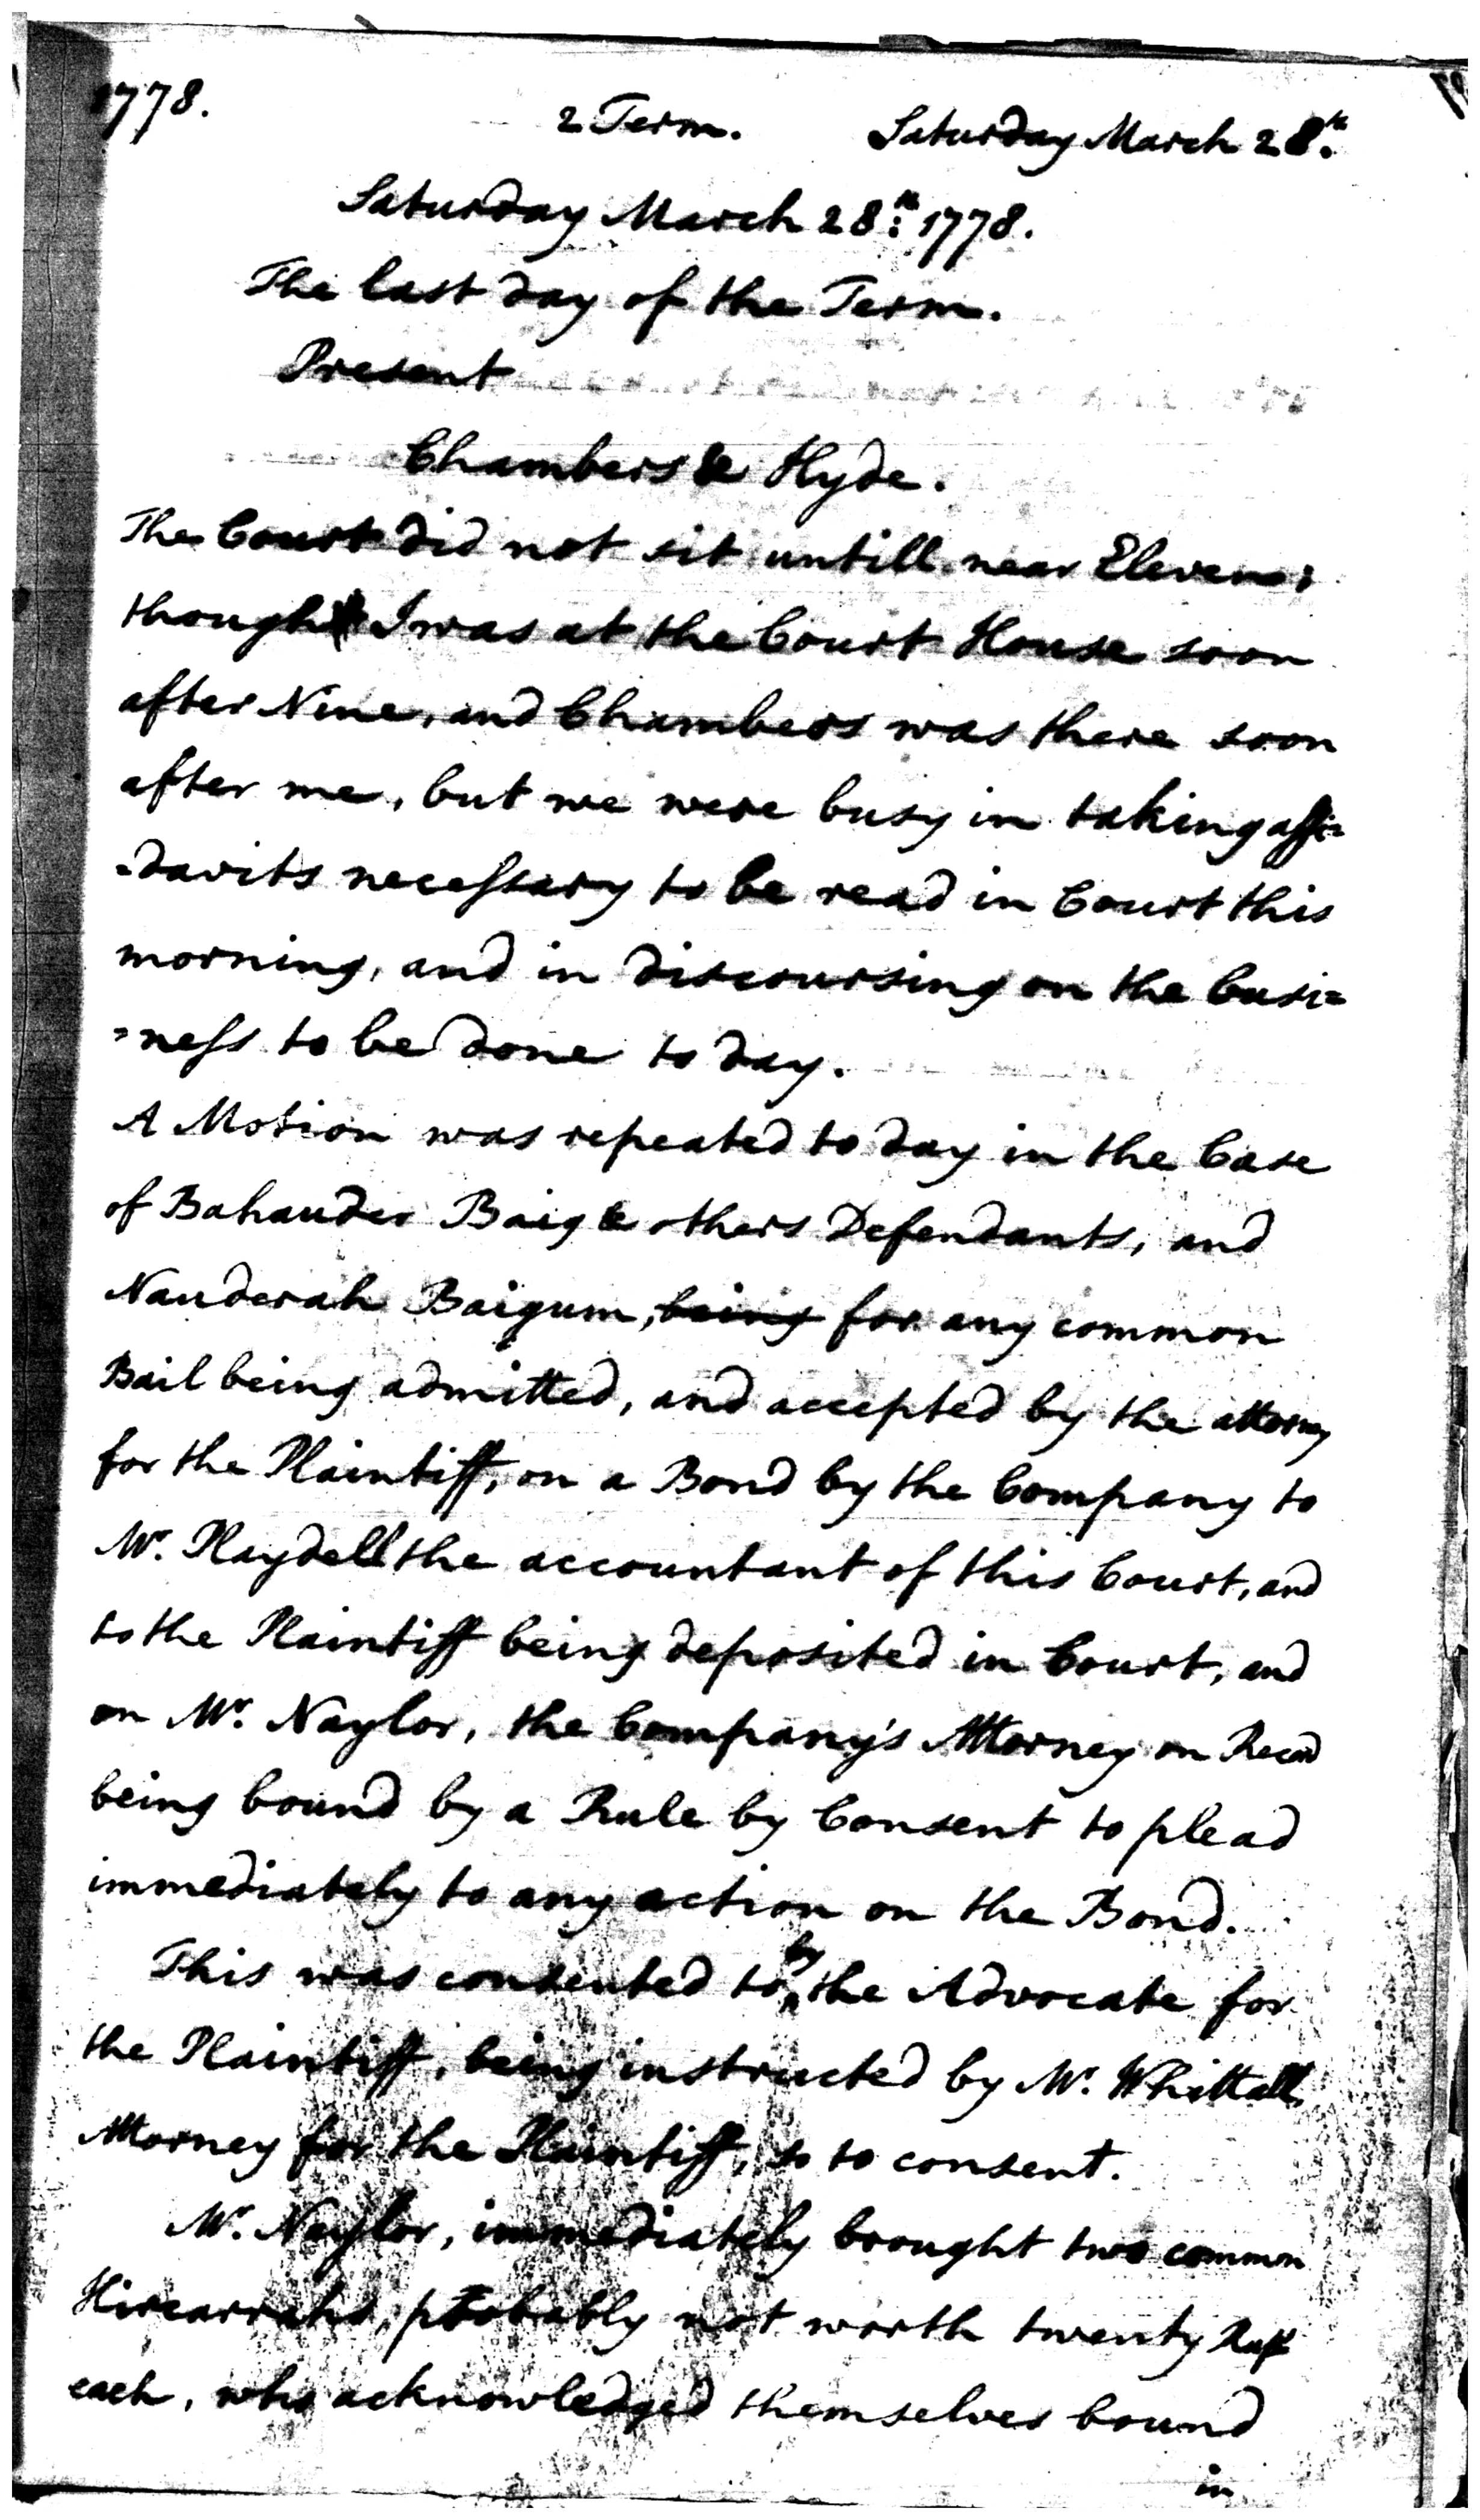 1778. 2 Term. Saturday March 28.th
Saturday March 28.th 1778.
The last day of the Term.
Present
Chambers & Hyde.
The Court did not sit untill near Eleven;
though I was at the Court House soon
after Nine, and Chambers was there soon
after me, but we were busy in taking affi=
=davits necessary to be read in Court this
morning, and in discoursing on the busi=
=ness to be done to day.
A Motion was repeated to day in the Case
of Bahauder Baig & others Defendants, and
Nauderah Baigum, being for any common
Bail being admitted, and accepted by the attorney
for the Plaintiff, on a Bond by the Company to
Mr. Playdell the accountant of this Court, and
to the Plaintiff being deposited in Court, and
on Mr. Naylor, the Company's Attorney on Record
being bound by a Rule by Consent to plead
immediately to any action on the Bond.
This was consented to by the Advocate for
the Plaintiff, being instructed by Mr. Whittall
Attorney for the Plaintiff, so to consent.
Mr. Naylor, immediately brought two common
Hircarrahs, probably not worth twenty Rups
each, who acknowledged themselves bound
in